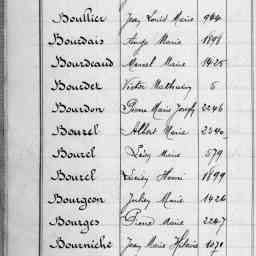 Boullier Jean Louis Marie 944
Bourdais Ange Marie 1898
Bourdeaud Marcel Marie 1425
Bourdet Victor Mathurin 5
Bourdon Pierre Marie Joseph 2246
Bourel Albert Marie 2340
Bourel Léon Marie 579
Bourel Henri 1899
Bourgeon Julien Marie 1426
Bourges Pierre Marie 2247
Bourniche Jean Marie Hilaire 1171